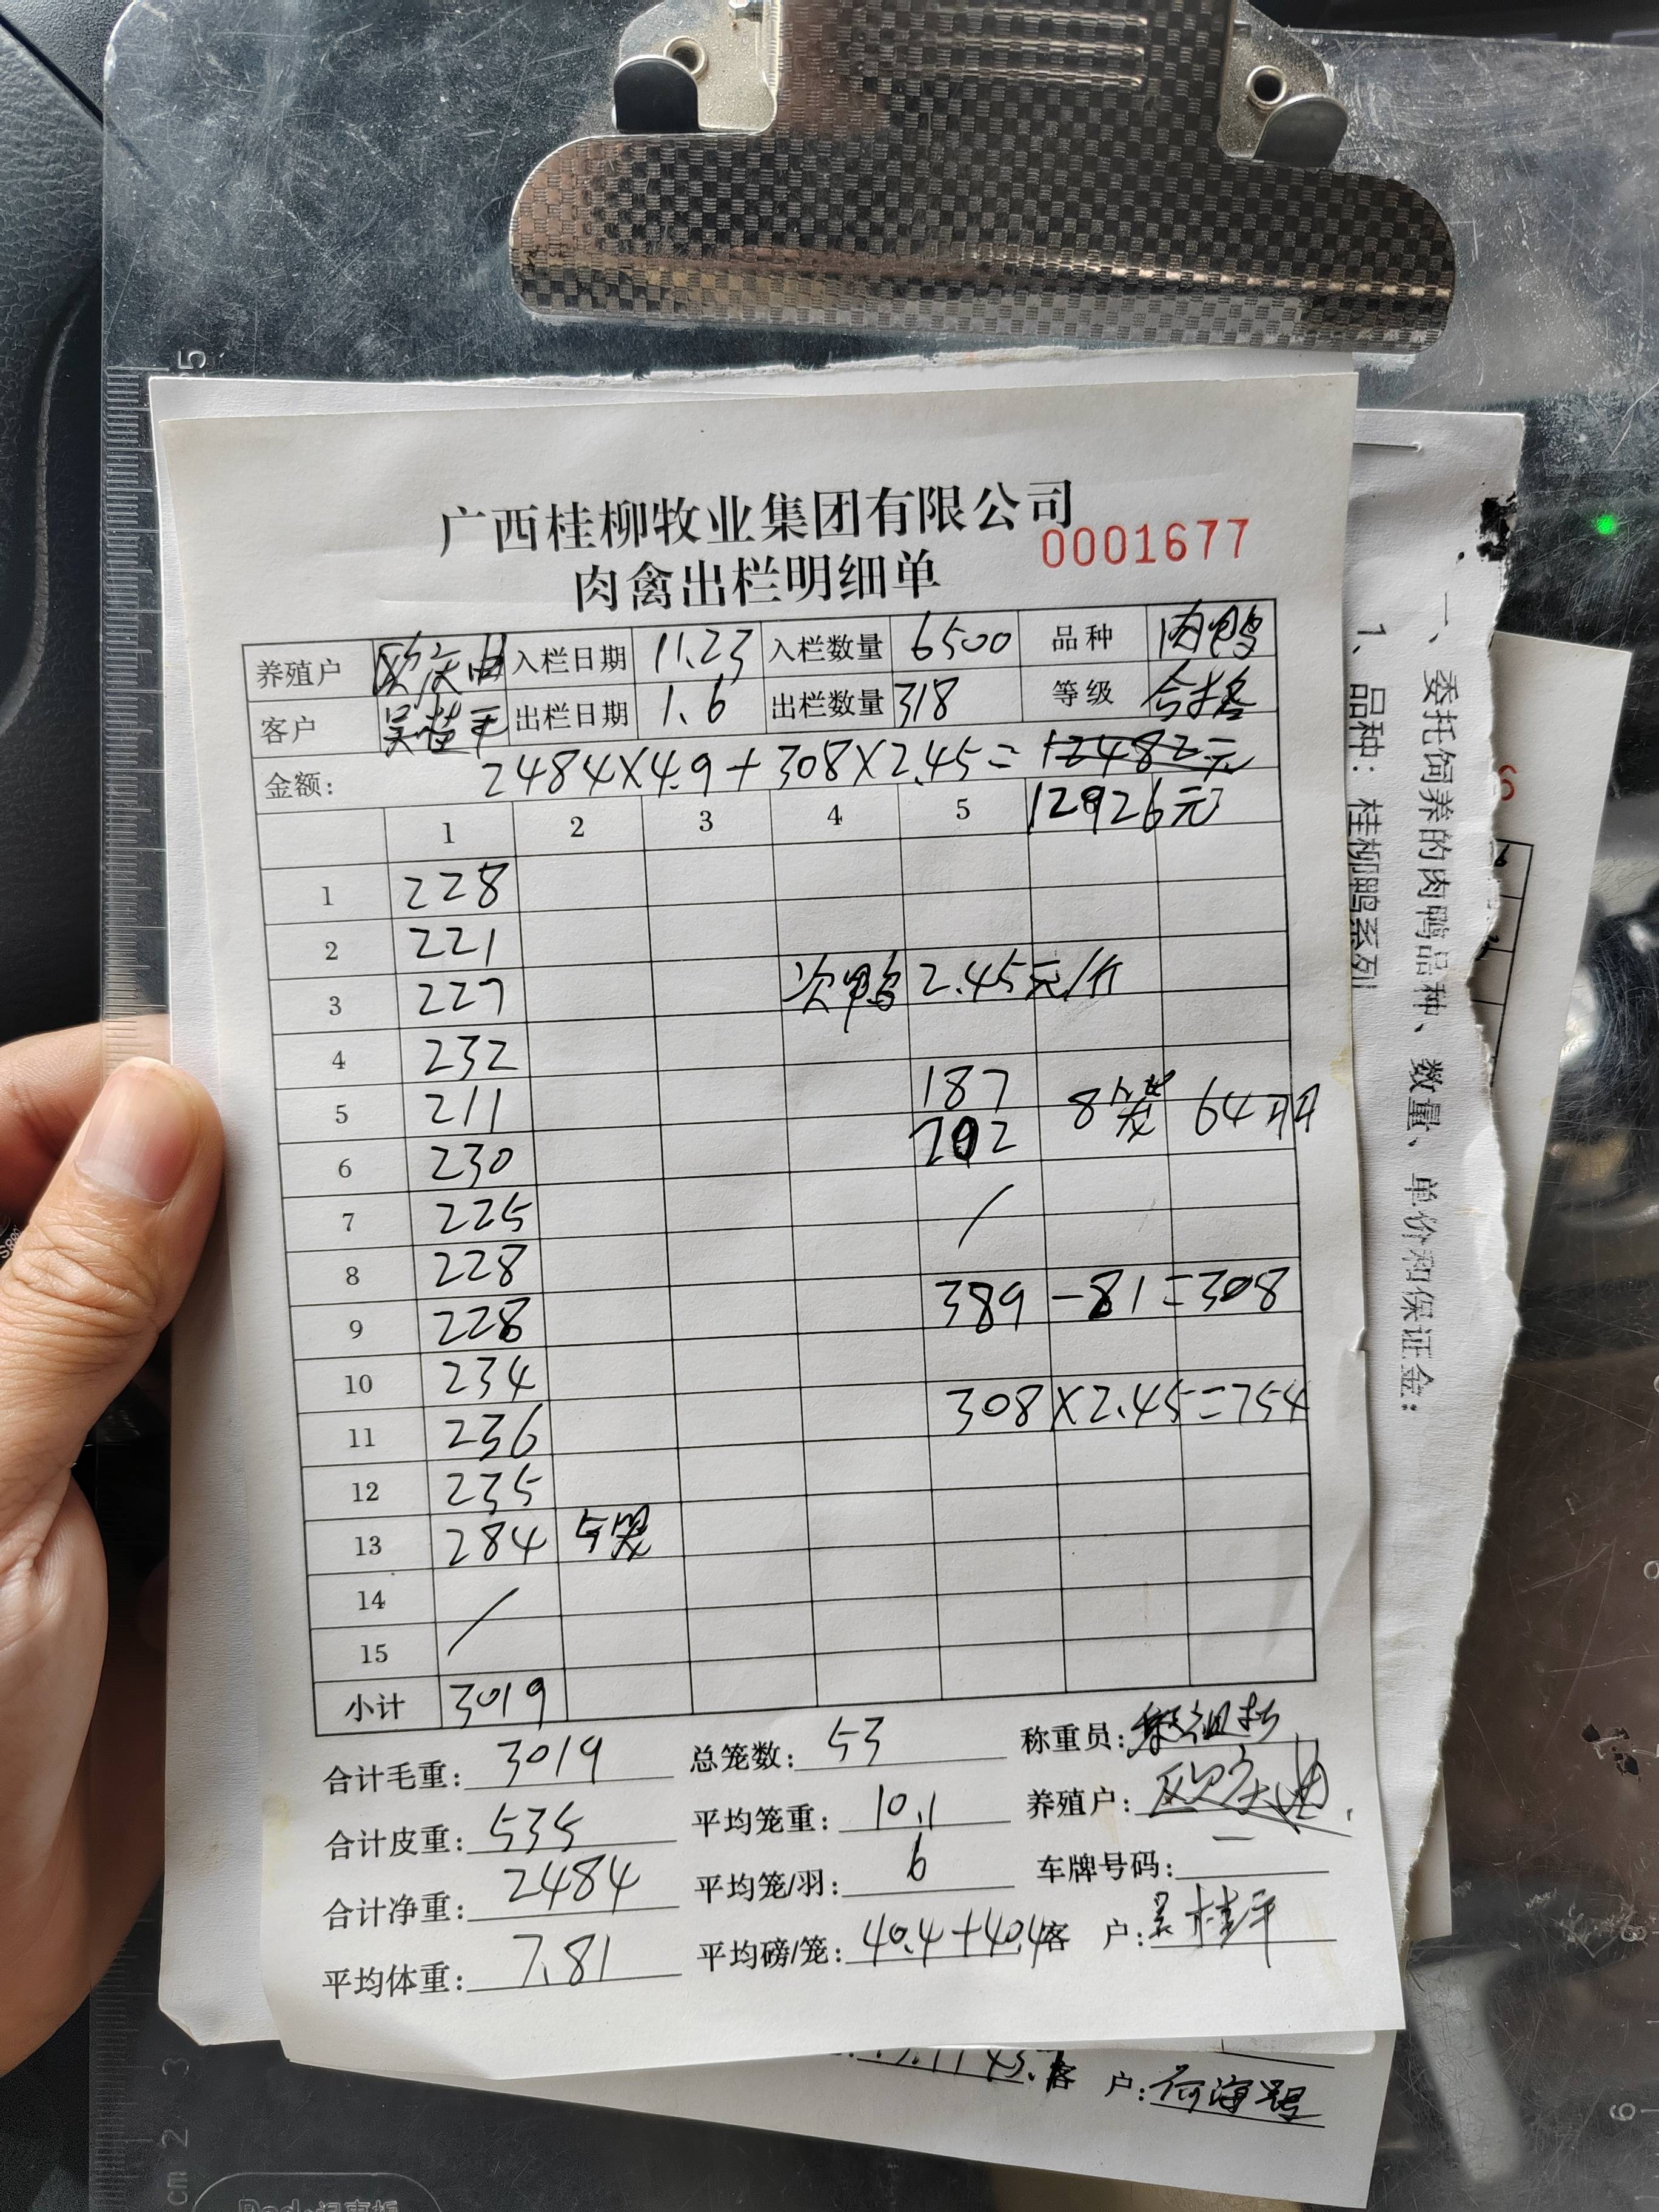 广西桂柳牧业集团有限公司
0001677
肉禽出栏明细单
养殖户 入栏日期 11.23 入栏数量 6500 品种 肉鸭
客户 出栏日期 1.6 出栏数量 318 等级 合格
金额: 2484×4.9+308×2.45=12482元
12926元
1 2 3 4 5
1 228
2 221
3 227 次鸭 2.45元/斤
4 232
5 211 187 8笼 64羽
6 230 202
7 225 /
8 228
9 228 389-81=308
10 234
11 236 308×2.45=754
12 235
13 284 5笼
14 /
15
小计 3019
合计毛重: 3019 总笼数: 53 称重员:
合计皮重: 535 平均笼重: 10.1 养殖户:
合计净重: 2484 平均笼/羽: 6 车牌号码: —
平均体重: 7.81 平均磅/笼: 40.4+40.4 客 户: 吴桂平
一、委托饲养的肉鸭品种、数量、单价和保证金:
1、品种: 桂柳鸭系列
客 户:
5
3
2
cm
6